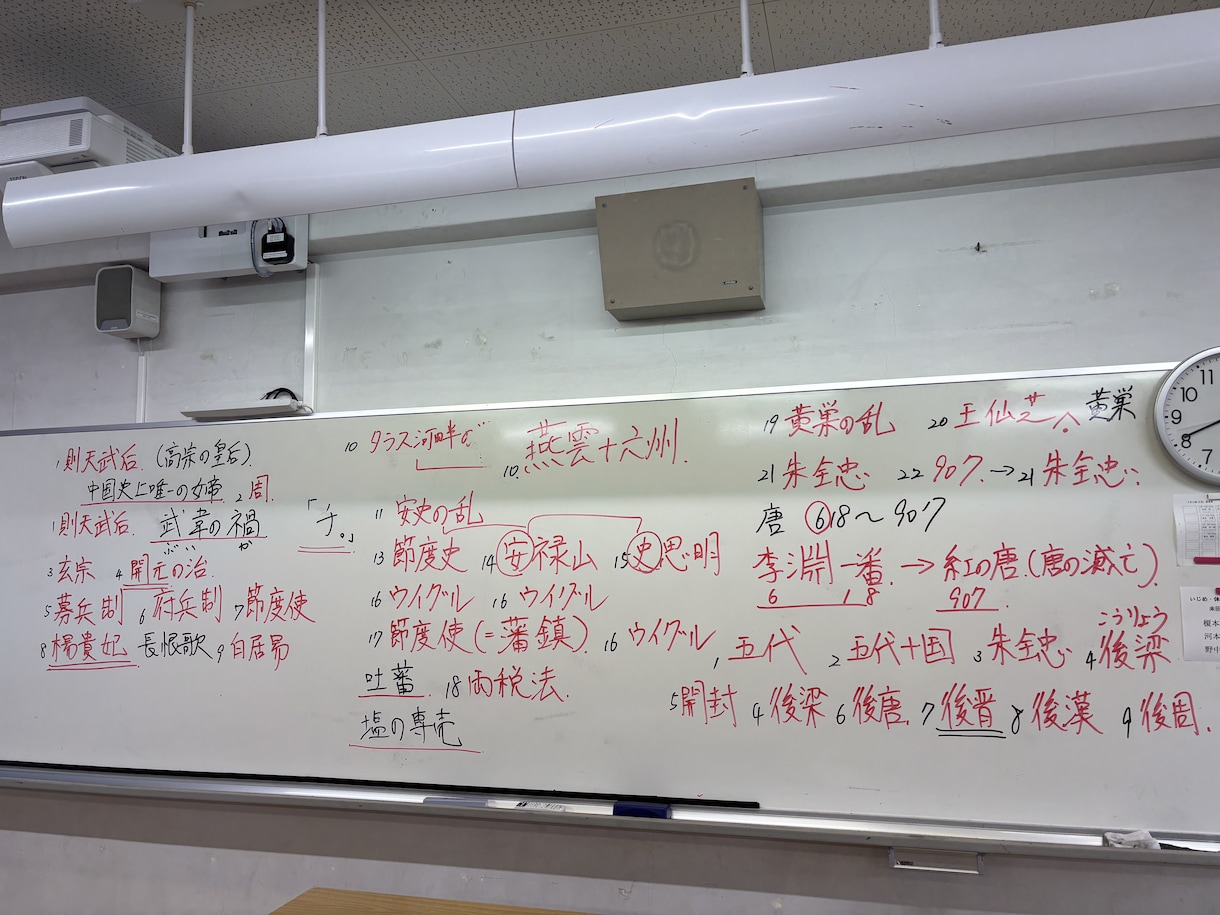 1 則天武后 (高宗の皇后).
中国史上唯一の女帝 2 周.
1 則天武后. 武韋の禍
ぶい か
3 玄宗 4 開元の治.
5 募兵制 6 府兵制 7 節度使
8 楊貴妃 長恨歌 9 白居易
「チ。」
10 タラス河畔の
10. 燕雲十六州.
11 安史の乱
13 節度史 14 安禄山 15 史思明
16 ウイグル 16 ウイグル
17 節度使(=藩鎮). 16 ウイグル
吐蕃 18 両税法.
塩の専売
19 黄巣の乱 20 王仙芝 へ 黄巣
21 朱全忠 22 907. → 21 朱全忠
唐 618〜907
李淵一番. → 紅の唐.(唐の滅亡).
6 1 8 907
こうりょう
1 五代 2 五代十国 3 朱全忠 4 後梁
5 開封 4 後梁 6 後唐. 7 後晋 8 後漢 9 後周.
11
10
9
8
7
いじめ・体
榎本
河本
野中